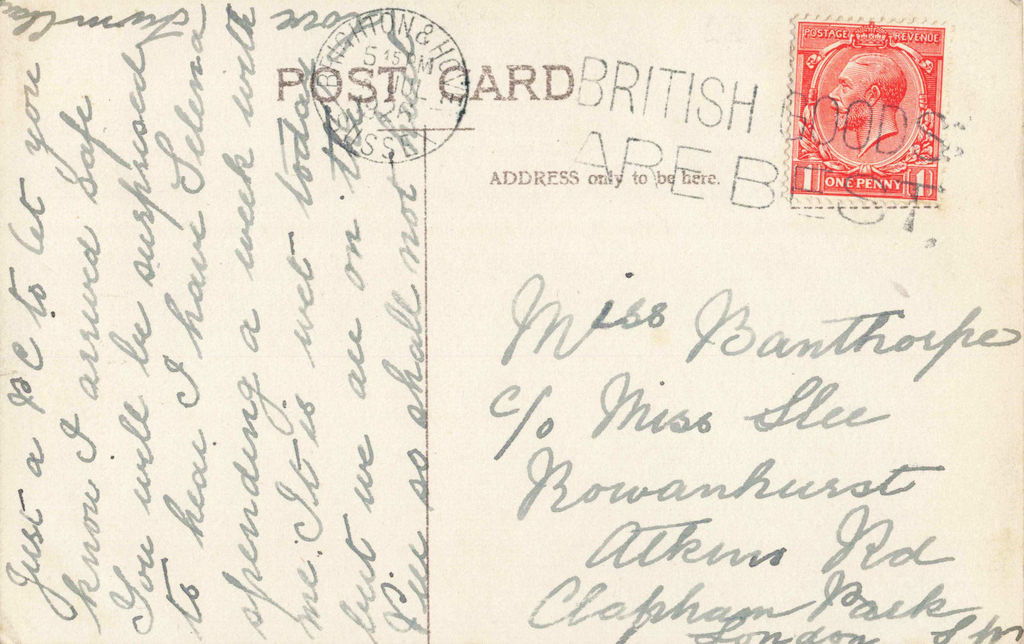 POST CARD
BRIGHTON & HOVE
5 15 PM
SUSSEX
BRITISH GOODS
ARE BEST.
POSTAGE REVENUE
1 ONE PENNY 1
ADDRESS only to be here.
Just a PC to let you
know I arrived safe
You will be surprised
to hear I have Selena
spending a week with
me. It is wet today
but we are on the
so shall not
Miss Banthorpe
c/o Miss Slee
Rowanhurst
Atkins Rd
Clapham Park
London